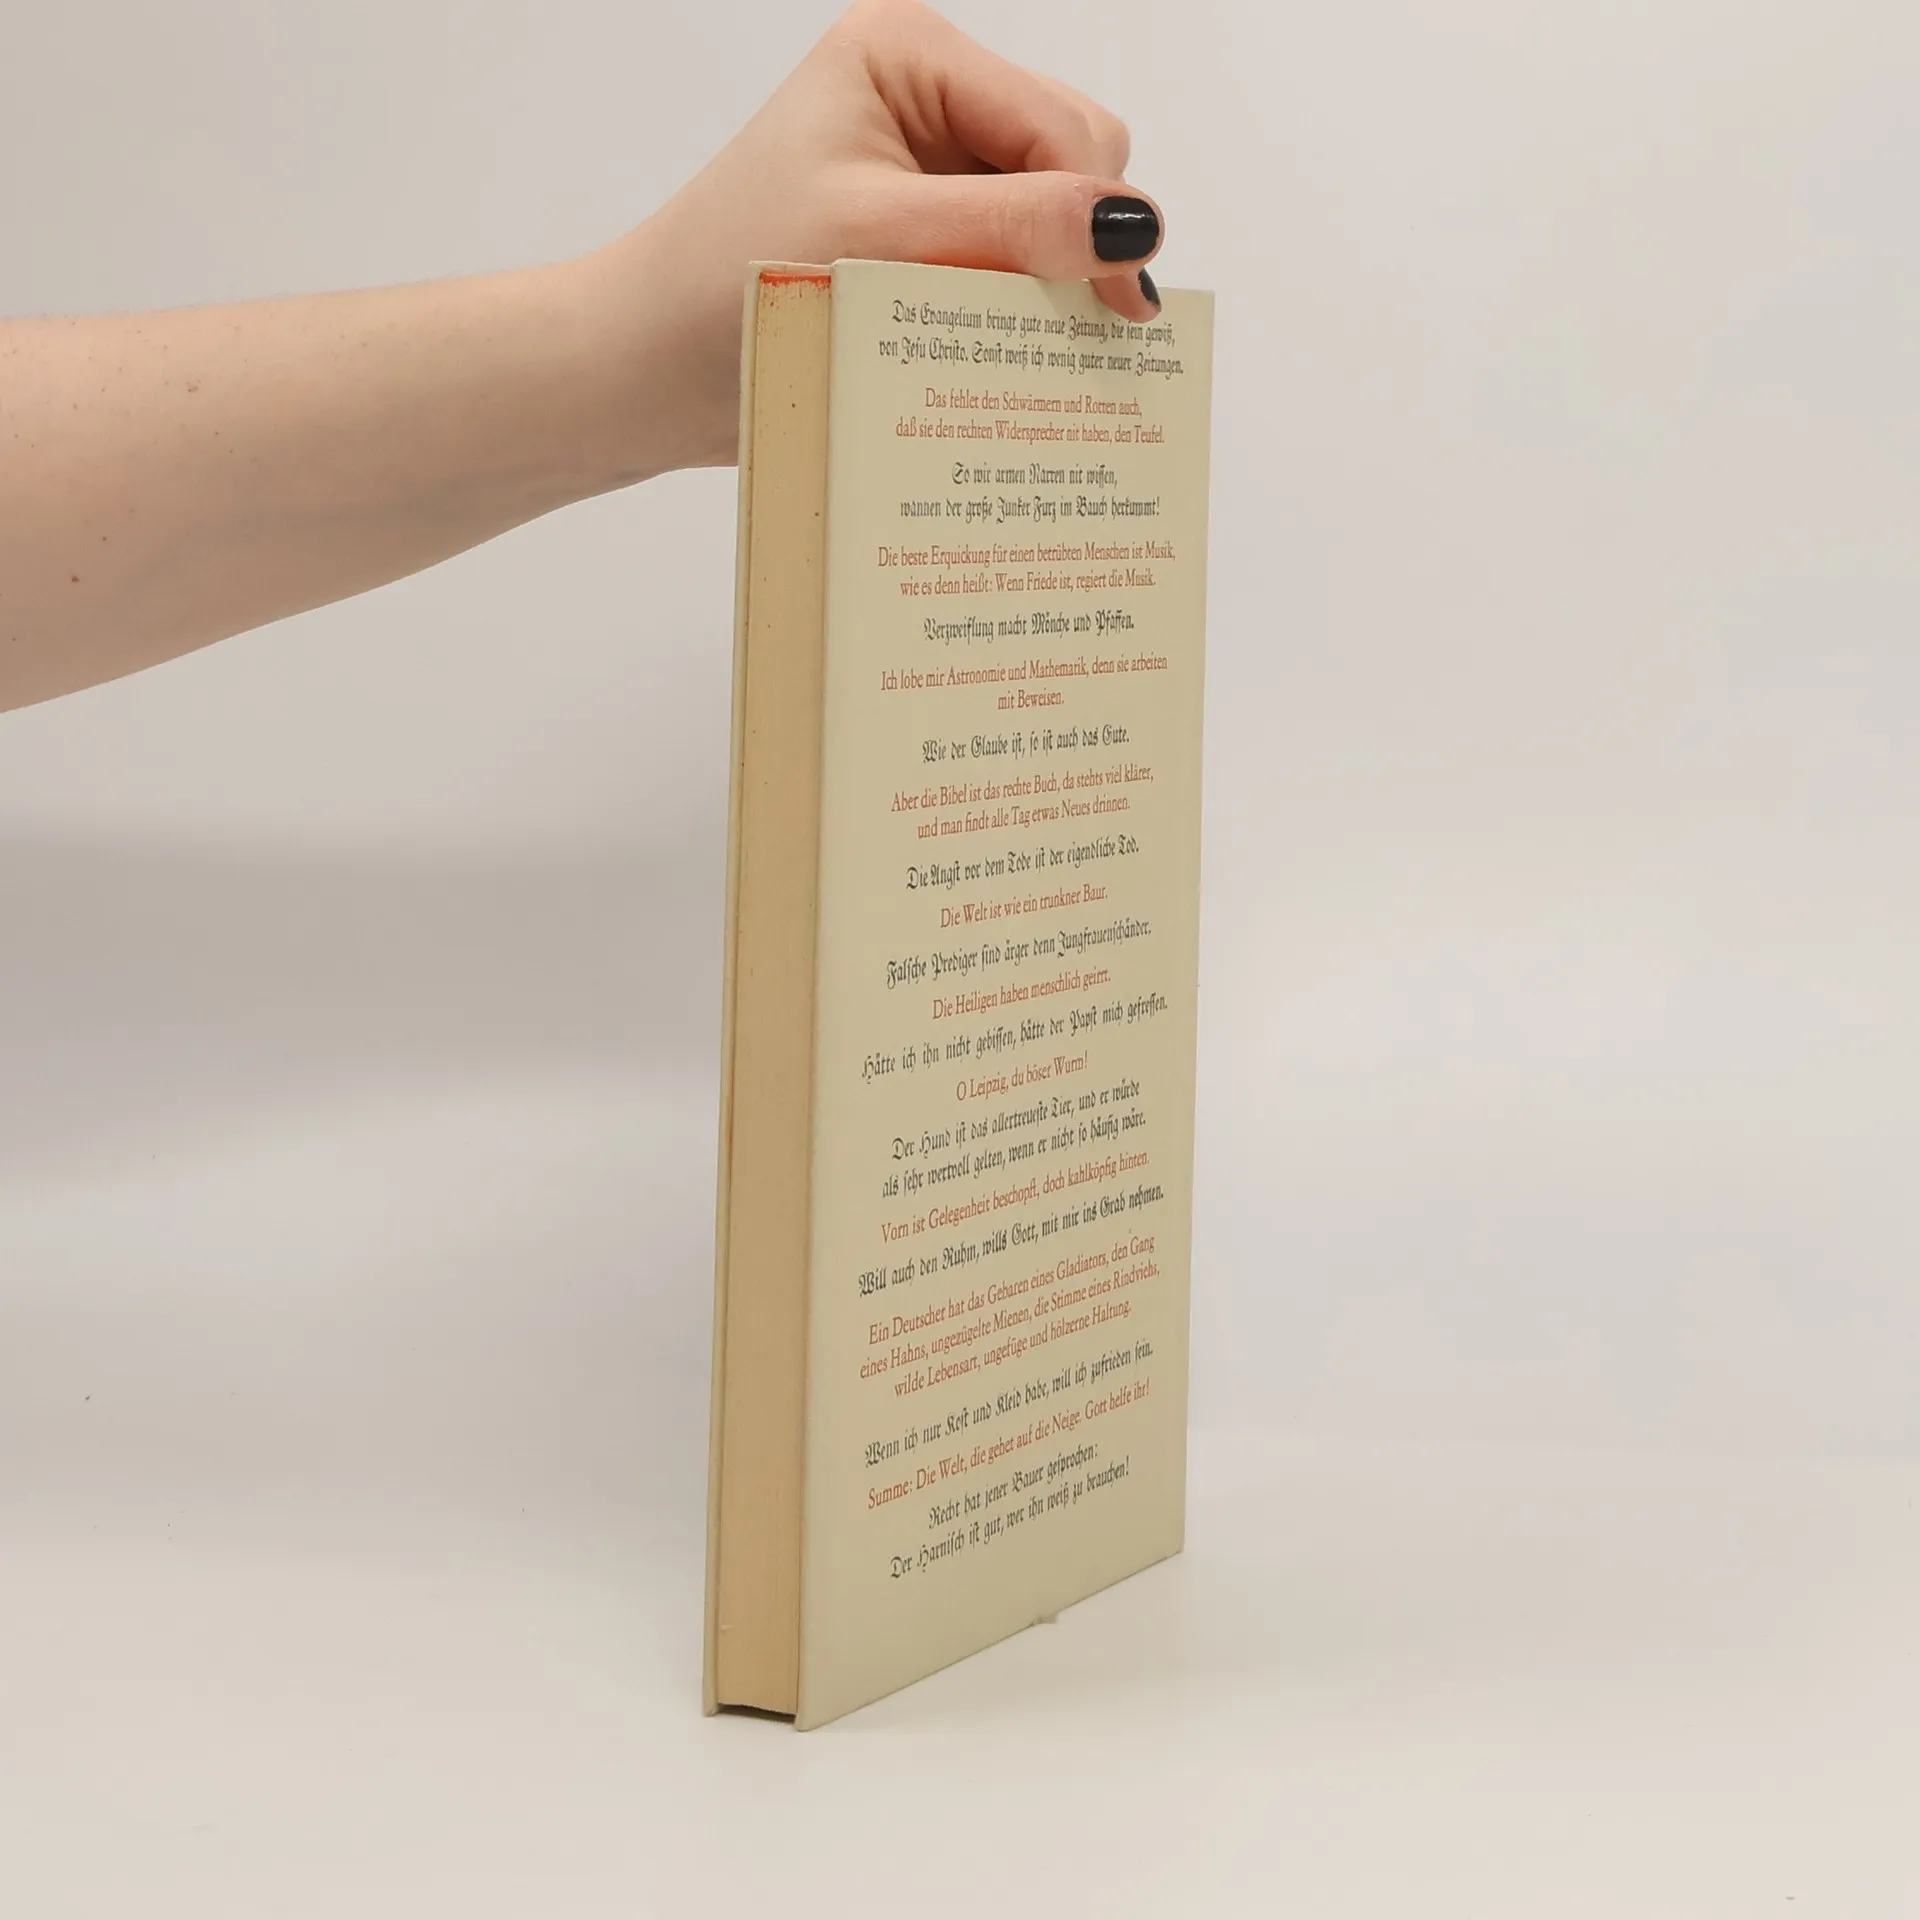 Das Evangelium bringt gute neue Zeitung, die sein gewiß,
von Jesu Christo. Sonst weiß ich wenig guter neuer Zeitungen.
Das fehlet den Schwärmern und Rotten auch,
daß sie den rechten Widersprecher nit haben, den Teufel.
So wir armen Narren nit wissen,
wannen der große Junker Furz im Bauch herkummt!
Die beste Erquickung für einen betrübten Menschen ist Musik,
wie es denn heißt: Wenn Friede ist, regiert die Musik.
Verzweiflung macht Mönche und Pfaffen.
Ich lobe mir Astronomie und Mathematik, denn sie arbeiten
mit Beweisen.
Wie der Glaube ist, so ist auch das Gute.
Aber die Bibel ist das rechte Buch, da stehts viel klärer,
und man findt alle Tag etwas Neues drinnen.
Die Angst vor dem Tode ist der eigendliche Tod.
Die Welt ist wie ein trunkner Baur.
Falsche Prediger sind ärger denn Jungfrauenschänder.
Die Heiligen haben menschlich geirrt.
Hätte ich ihn nicht gebissen, hätte der Papst mich gefressen.
O Leipzig, du böser Wurm!
Der Hund ist das allertreueste Tier, und er würde
als sehr wertvoll gelten, wenn er nicht so häufig wäre.
Vorn ist Gelegenheit beschopft, doch kahlköpfig hinten.
Will auch den Ruhm, wills Gott, mit mir ins Grab nehmen.
Ein Deutscher hat das Gebaren eines Gladiators, den Gang
eines Hahns, ungezügelte Mienen, die Stimme eines Rindviehs,
wilde Lebensart, ungefüge und hölzerne Haltung.
Wenn ich nur Kost und Kleid habe, will ich zufrieden sein.
Summe: Die Welt, die gehet auf die Neige. Gott helfe ihr!
Recht hat jener Bauer gesprochen:
Der Harnisch ist gut, wer ihn weiß zu brauchen!